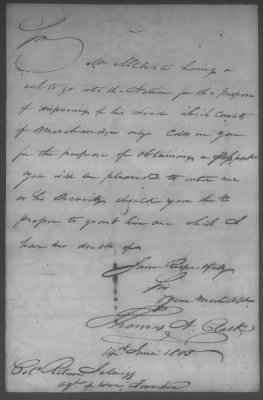 Sir
Mr having a
wish to go into the Nation for the purpose
of disposing of his Load which consists
of Merchandise only calls on you
for the purpose of Obtaining a Passport
You will be pleased to enter me
as his Security should you think
proper to grant him one which I
have no doubts of
I am Respectfully
Sir
Your Most Obt
Thomas N. Clark
14th June 1808
Colo Return J Meigs
Agt of War